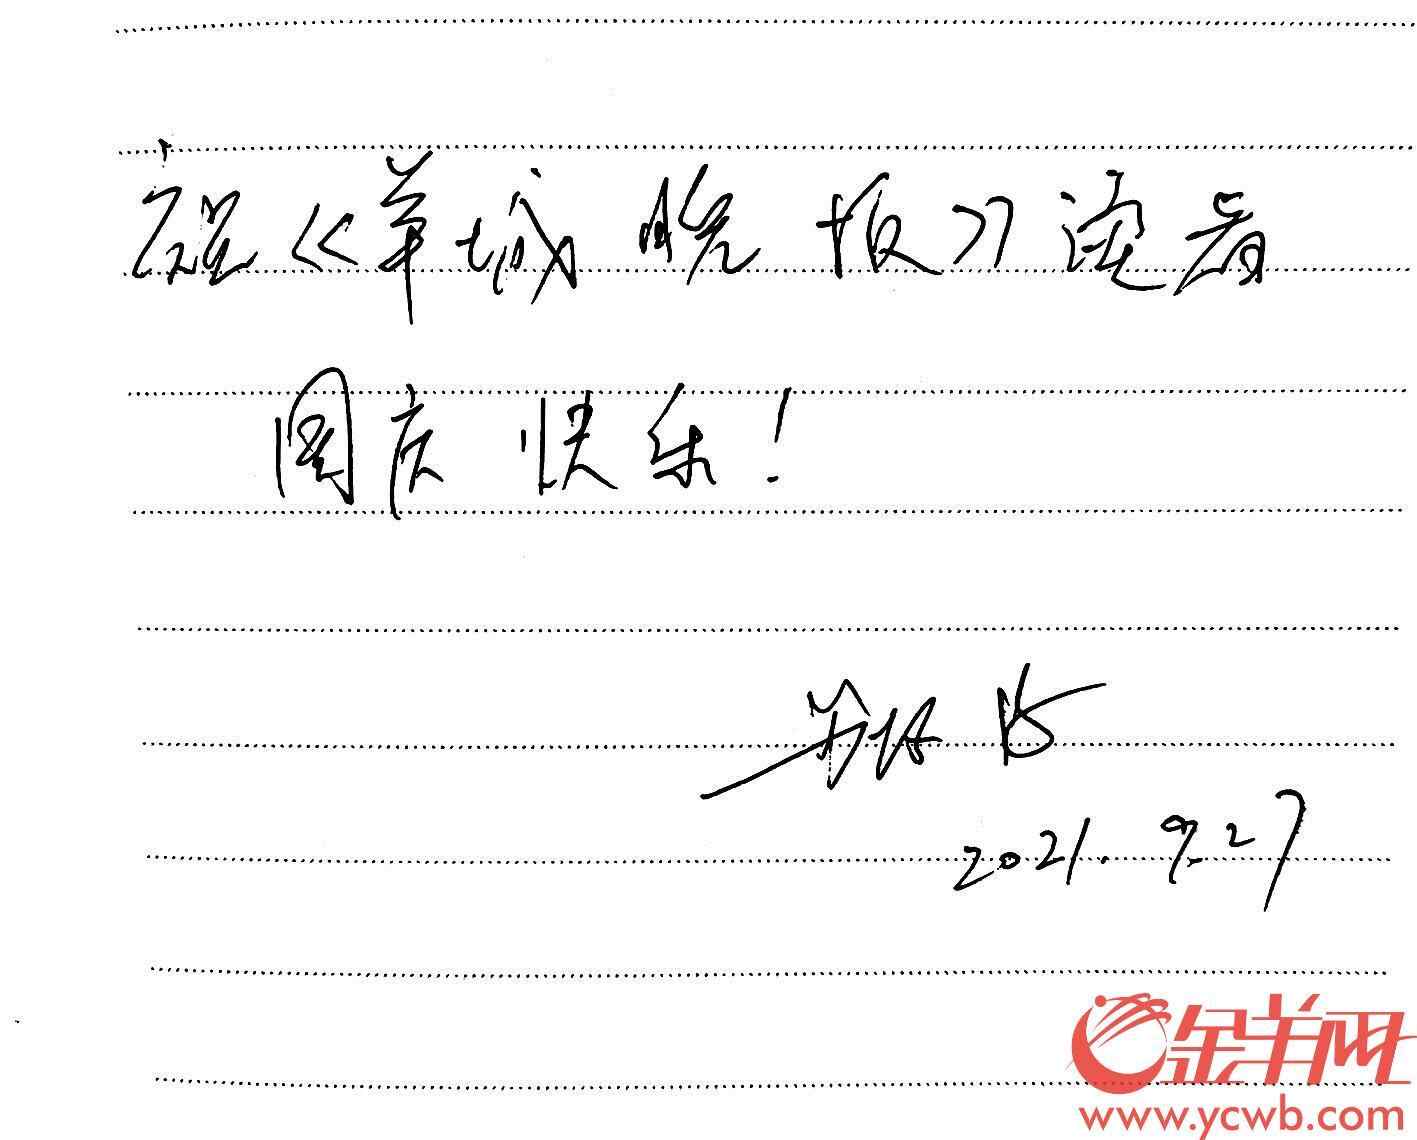 祝《羊城晚报》读者
国庆快乐！
2021.9.27
金羊网
www.ycwb.com